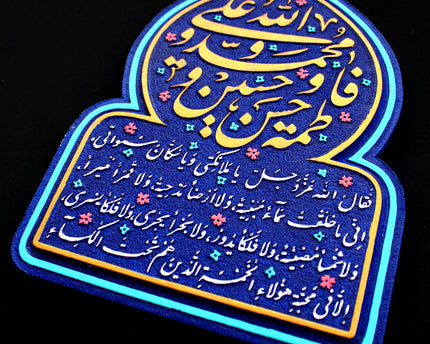 الله
محمد و علی
و فاطمة و
حسن و حسین
فقال الله عز و جل یا ملائکتی و یا سکان سمواتی
انی ما خلقت سماء مبنیة ولا ارضا مدحیة ولا قمرا منیرا
ولا شمسا مضیئة ولا فلکا یدور ولا بحرا یجری ولا فلکا یسری
الا فی محبة هؤلاء الخمسة الذین هم تحت الکساء